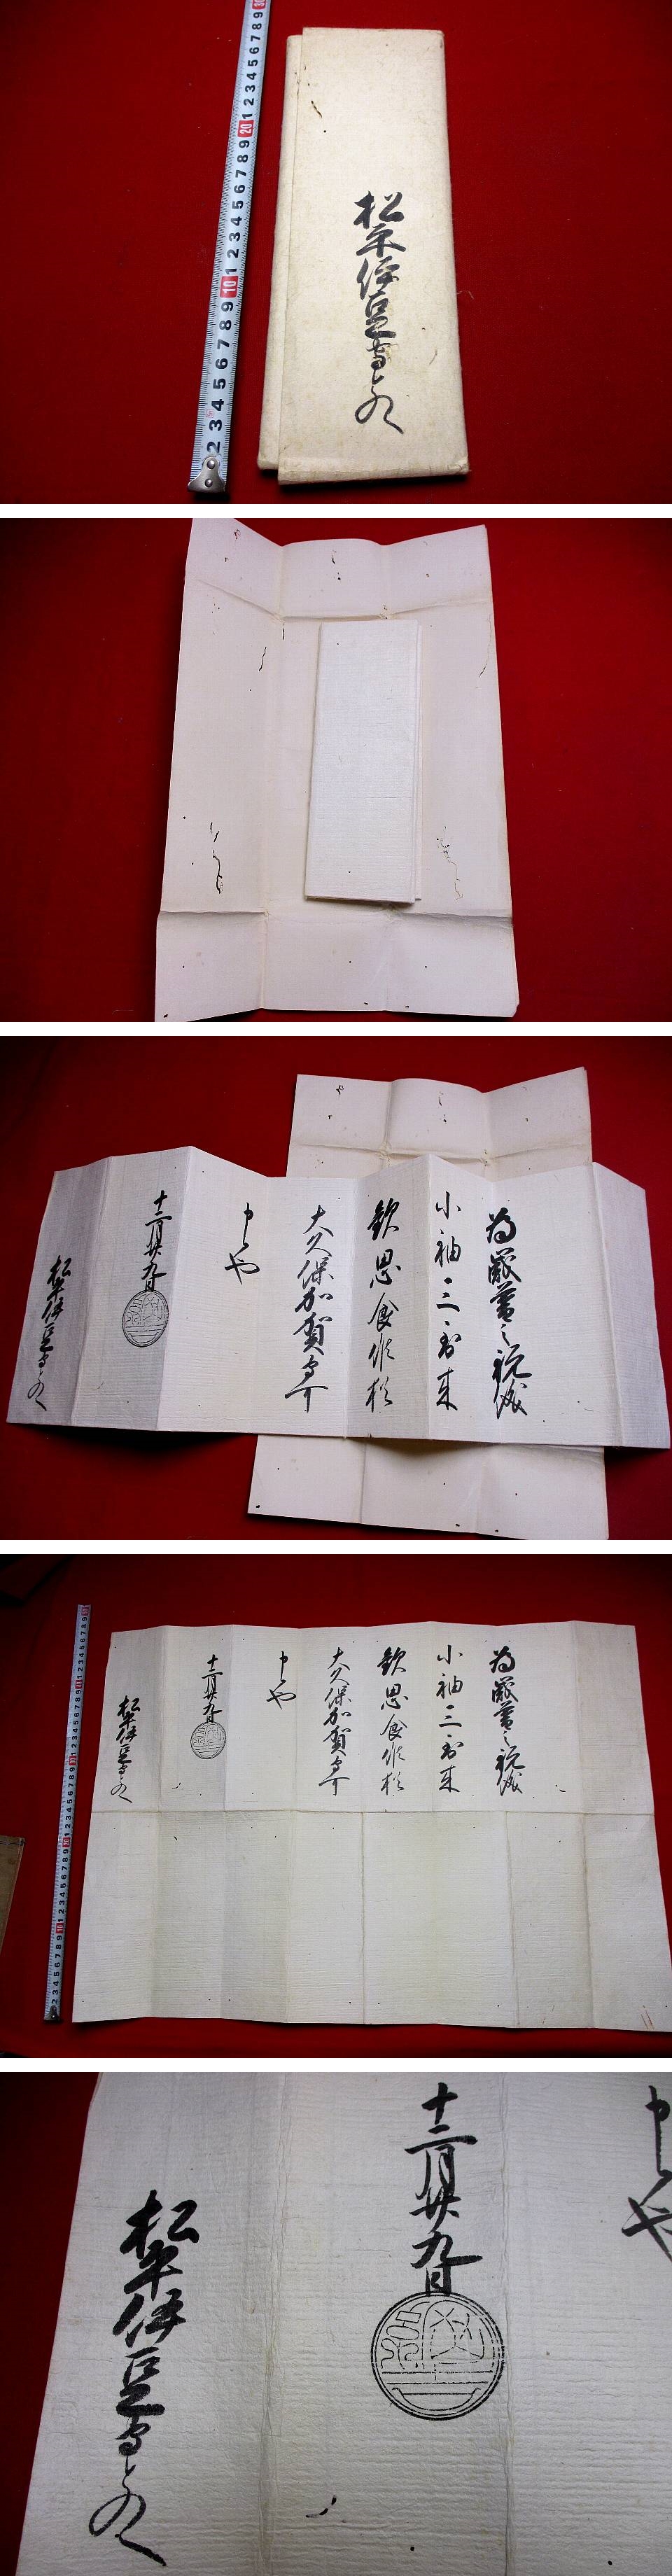 松平伊豆守との
為歳暮之祝儀
小袖三到来
歓思食候猶
大久保加賀守可
申也
十二月廿九日
松平伊豆守との
為歳暮之祝儀
小袖三到来
歓思食候猶
大久保加賀守可
申也
十二月廿九日
松平伊豆守との
申也
十二月廿九日
松平伊豆守との